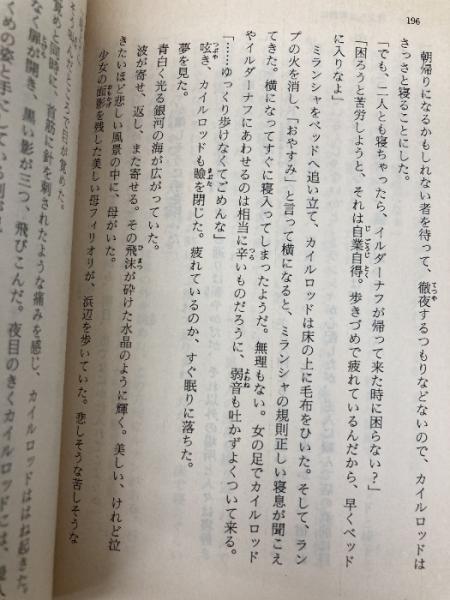 196
朝帰りになるかもしれない者を待って、徹夜するつもりなどないので、カイルロッドは
さっさと寝ることにした。
「でも、二人とも寝ちゃったら、イルダーナフが帰って来た時に困らない?」
「困ろうと苦労しようと、それは自業自得。歩きづめで疲れているんだから、早くベッド
に入りなよ」
ミランシャをベッドへ追い立て、カイルロッドは床の上に毛布をひいた。そして、ラン
プの火を消し、「おやすみ」と言って横になると、ミランシャの規則正しい寝息が聞こえ
てきた。横になってすぐに寝入ってしまったようだ。無理もない。女の足でカイルロッド
やイルダーナフにあわせるのは相当に辛いものだろうに、弱音も吐かずよくついて来る。
「……ゆっくり歩けなくてごめんな」
呟き、カイルロッドも瞼を閉じた。疲れているのか、すぐ眠りに落ちた。
夢を見た。
青白く光る銀河の海が広がっていた。
波が寄せ、返し、また寄せる。その飛沫が砕けた水晶のように輝く。美しい、けれど泣
きたいほど悲しい風景の中に、母がいた。
少女の面影を残した美しい母フィリオリが、浜辺を歩いていた。悲しそうな苦しそうな
ところで目が覚めた。
覚め、同時に、首筋に針を刺されたような痛みを感じ、カイルロッドははね起きた。
なく扉が開き、黒い影が三つ、飛びこんだ。夜目のきくカイルロッドには、